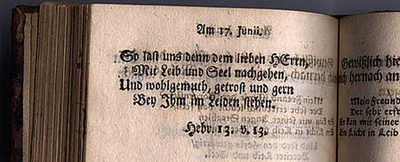 Am 17. Junii.
So last uns denn dem lieben HErrn,
Mit Leib und Seel nachgehen,
Und wohlgemuth, getrost und gern
Bey Ihm im Leiden stehen.
Hebr. 13. v. 13.
Gewißlich hie
hernach an
Mein Freund
Der sehr erste
kan mit seiner
in Leib